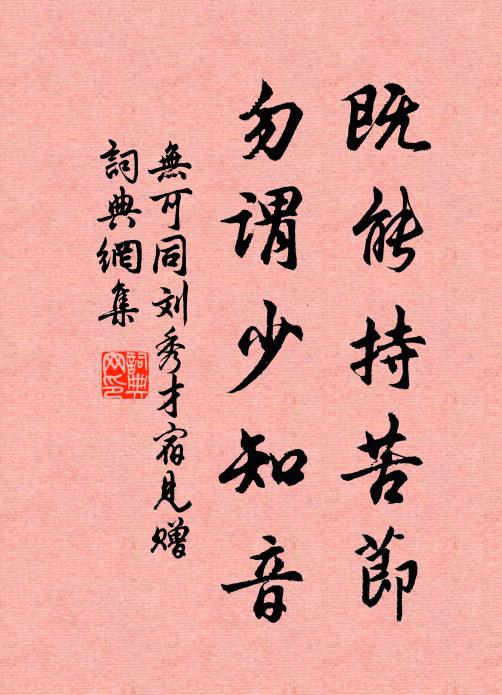 既能持苦節
勿谓少知音
無可同刘秀才宿見赠
詞典網集
詞典
网印